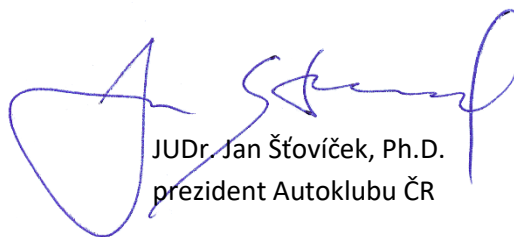 JUDr. Jan Šťovíček, Ph.D.
prezident Autoklubu ČR